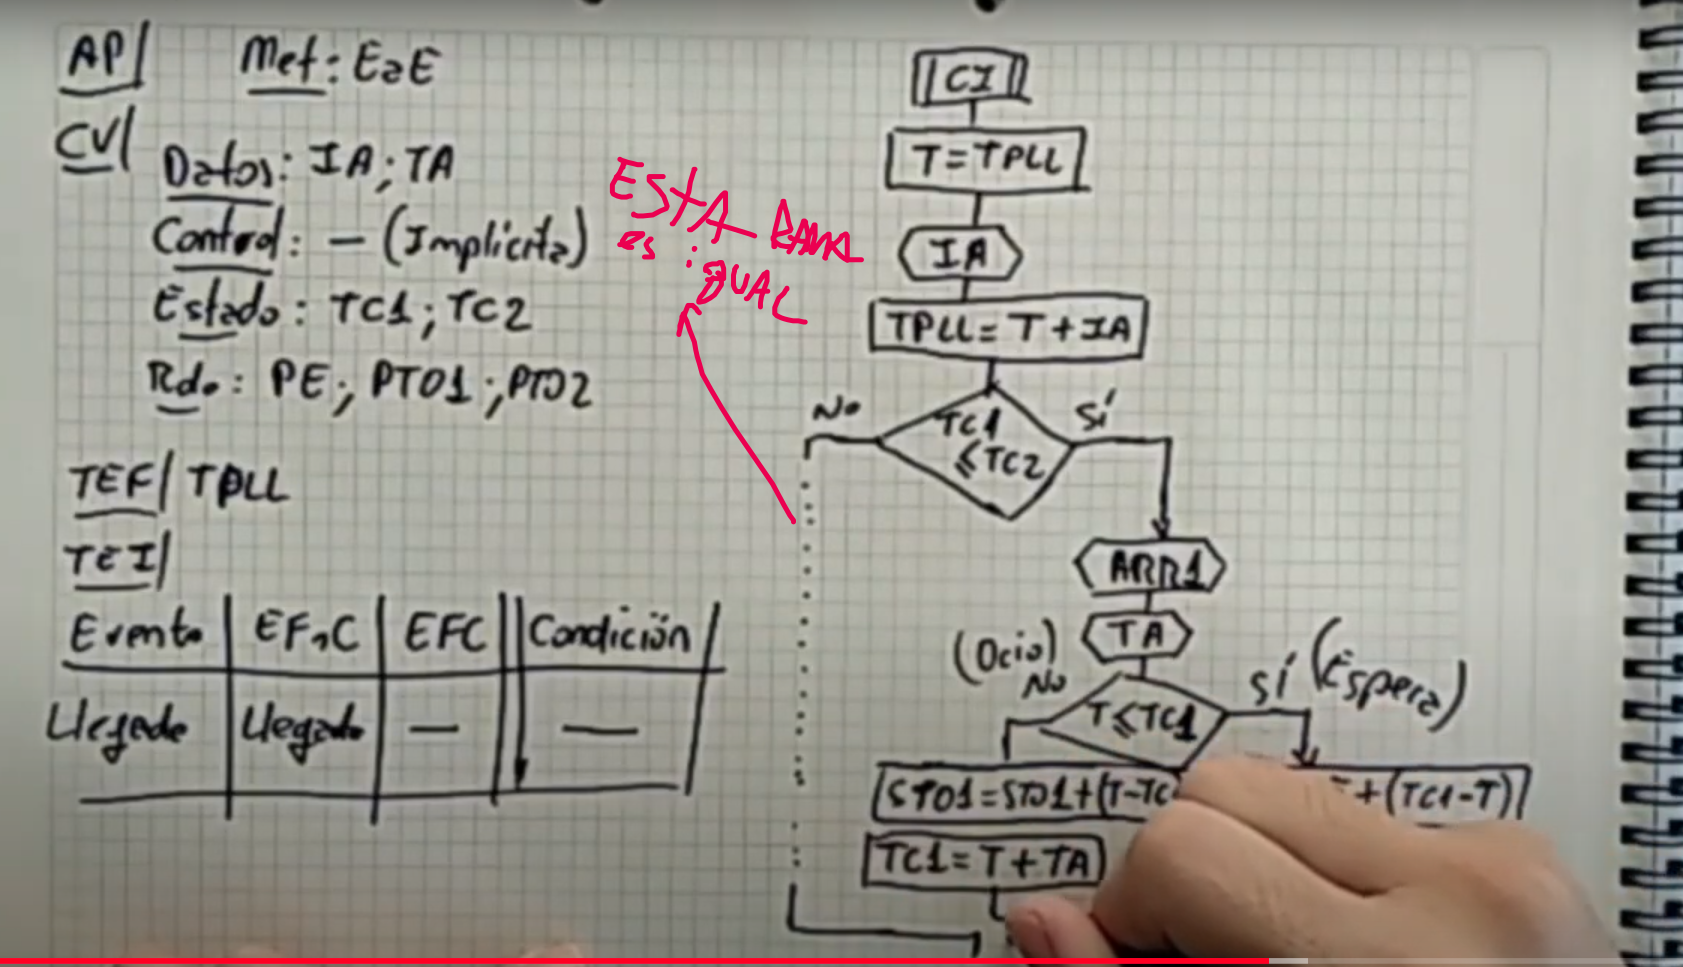 AP/ Met: EaE
CV/
Datos: IA; TA
Control: — (Implícita)
Estado: TC1; TC2
Rdo: PE; PTO1; PTO2
TEF/ TPLL
TEI/
Evento EFnC EFC Condición
Llegada Llegada — —
ESTA RAMA
es igUAL
CI
T=TPLL
IA
TPLL= T+IA
No TC1 Sí
≤TC2
ARR1
TA
(Ocio) No T≤TC1 Sí (Espera)
STO1=STO1+(T-TC
+(TC1-T)
TC1=T+TA